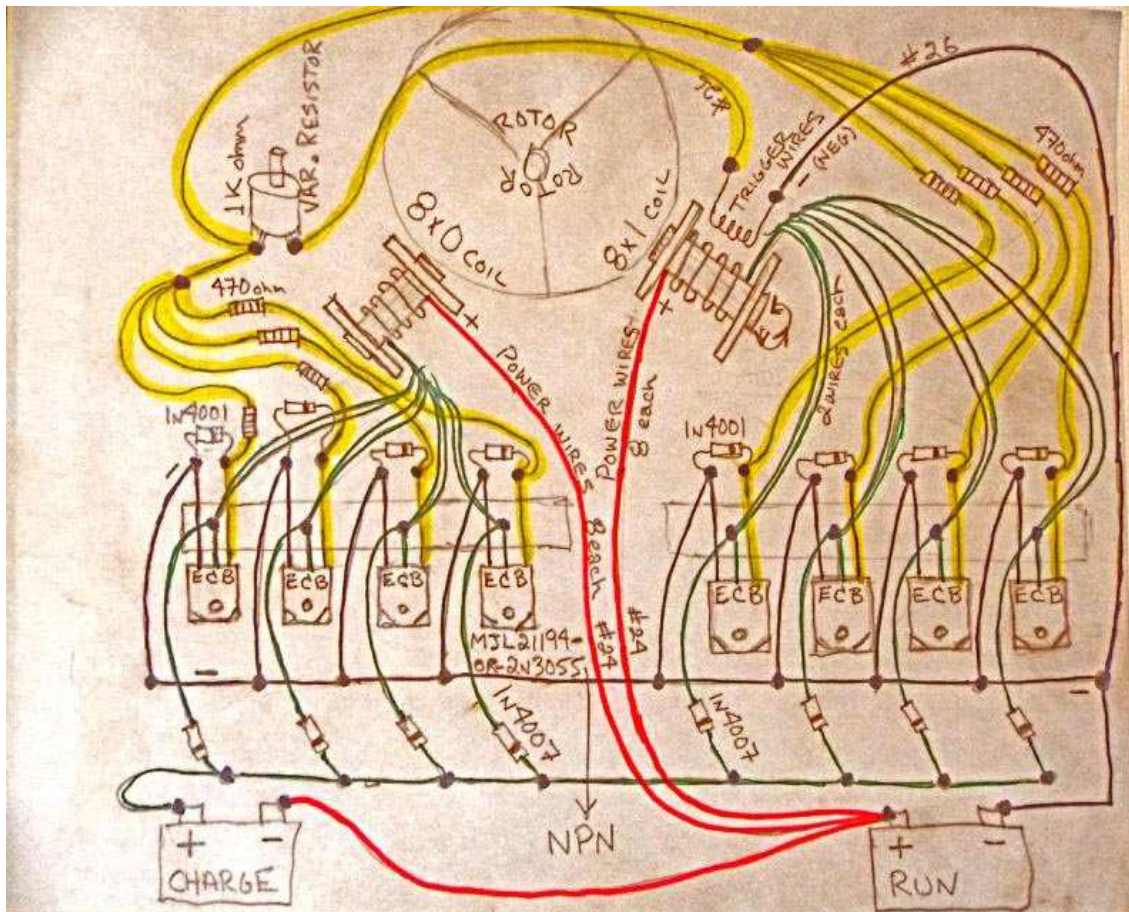 ROTOR
ROTOR
ROTOR
1K ohm
VAR. RESISTOR
#26
#26
TRIGGER
WIRES
(NEG)
-
470 ohm
8x0 COIL
8x1 COIL
470 ohm
+
+
POWER WIRES 8 each #24
POWER WIRES
8 each
#24
2 wires each
1N4001
1N4001
-
E C B
E C B
E C B
E C B
E C B
E C B
E C B
E C B
MJL21194-
OR-2N3055
-
-
1N4007
1N4007
NPN
+ -
CHARGE
+ -
RUN